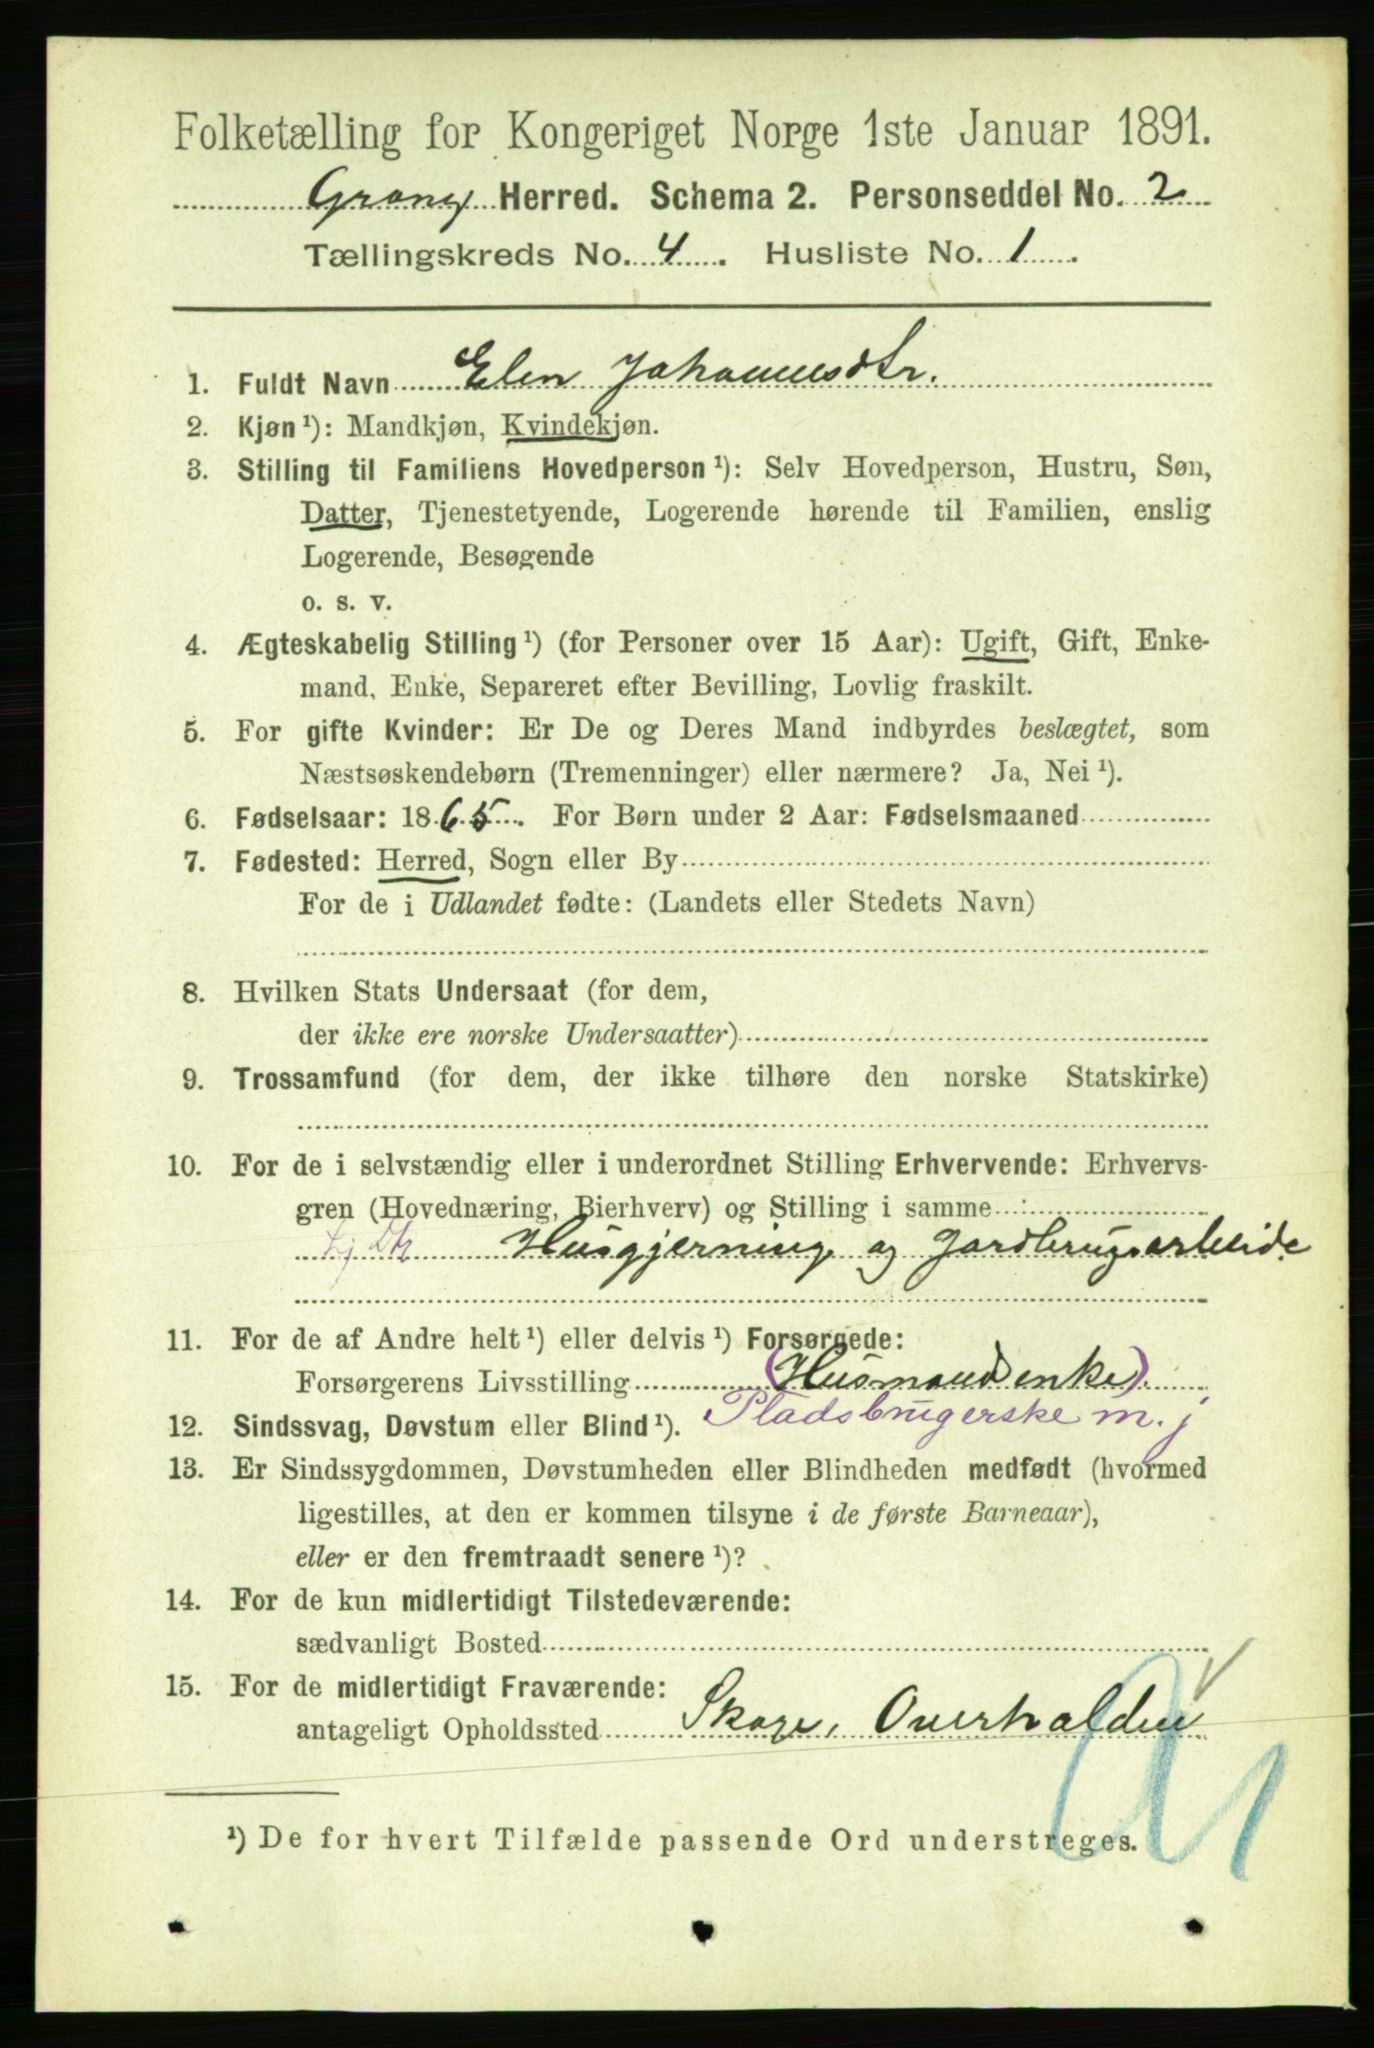 Folketælling for Kongeriget Norge 1ste Januar 1891.
Grong Herred. Schema 2. Personseddel No. 2
Tællingskreds No. 4. Husliste No. 1.
1. Fuldt Navn Elen Johannesdtr.
2. Kjøn ¹): Mandkjøn, Kvindekjøn.
3. Stilling til Familiens Hovedperson ¹): Selv Hovedperson, Hustru, Søn,
Datter, Tjenestetyende, Logerende hørende til Familien, enslig
Logerende, Besøgende
o. s. v.
4. Ægteskabelig Stilling ¹) (for Personer over 15 Aar): Ugift, Gift, Enke-
mand, Enke, Separeret efter Bevilling, Lovlig fraskilt.
5. For gifte Kvinder: Er De og Deres Mand indbyrdes beslægtet, som
Næstsøskendebørn (Tremenninger) eller nærmere? Ja, Nei ¹).
6. Fødselsaar: 1865. For Børn under 2 Aar: Fødselsmaaned
7. Fødested: Herred, Sogn eller By
For de i Udlandet fødte: (Landets eller Stedets Navn)
8. Hvilken Stats Undersaat (for dem,
der ikke ere norske Undersaatter)
9. Trossamfund (for dem, der ikke tilhøre den norske Statskirke)
10. For de i selvstændig eller i underordnet Stilling Erhvervende: Erhvervs-
gren (Hovednæring, Bierhverv) og Stilling i samme
Husgjerning og Jordbrugsarbeide
11. For de af Andre helt ¹) eller delvis ¹) Forsørgede:
Forsørgerens Livsstilling (Husmandsenke)
Pladsbrugerske m. j
12. Sindssvag, Døvstum eller Blind ¹).
13. Er Sindssygdommen, Døvstumheden eller Blindheden medfødt (hvormed
ligestilles, at den er kommen tilsyne i de første Barneaar),
eller er den fremtraadt senere ¹)?
14. For de kun midlertidigt Tilstedeværende:
sædvanligt Bosted
15. For de midlertidigt Fraværende:
antageligt Opholdssted Skage, Overhalden
¹) De for hvert Tilfælde passende Ord understreges.